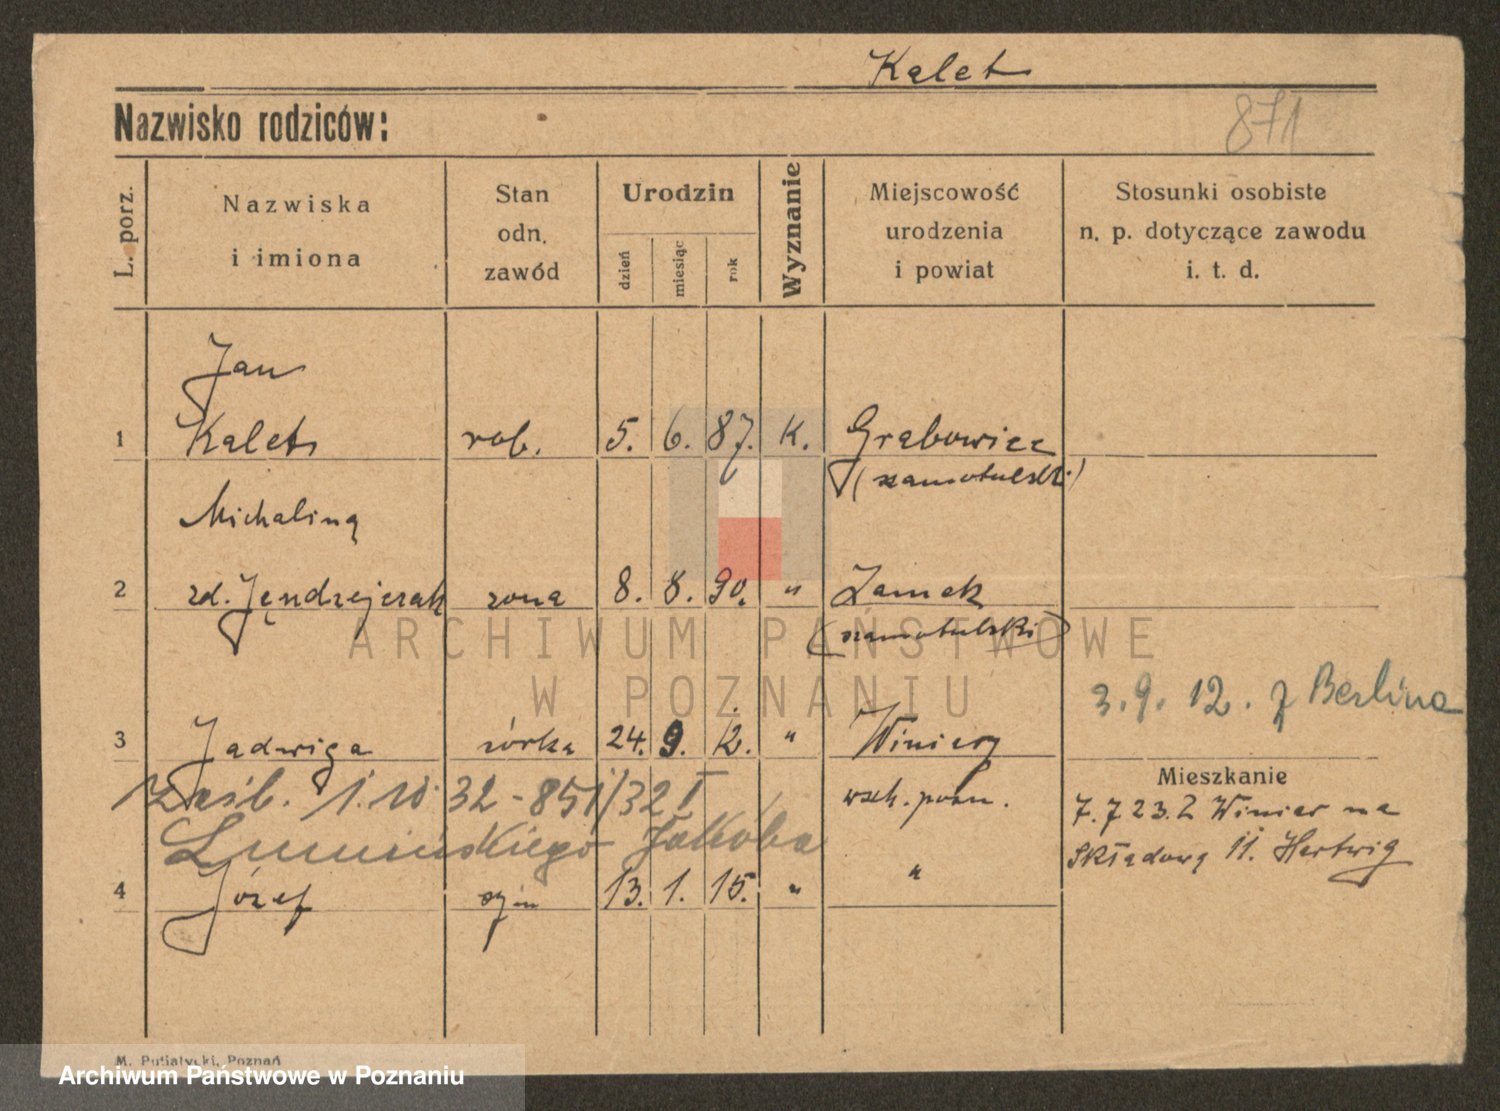 Kalet
Nazwisko rodziców:
871
L. porz.
Nazwiska
i imiona
Stan
odn.
zawód
Urodzin
dzień
miesiąc
rok
Wyznanie
Miejscowość
urodzenia
i powiat
Stosunki osobiste
n. p. dotyczące zawodu
i. t. d.
Jan
1 Kalet rob. 5. 6. 87. K. Grabowiec
(szamotulski)
Michalina
2 zd. Jendrzejczak żona 8. 8. 90. " Zamek
(szamotulski)
3. 9. 12. z Berlina
3 Jadwiga córka 24. 9. 12. " Winiary
wsch. pozn.
Mieszkanie
zaśb. 1. 10. 32 - 851/32 I
7. 7 23. Z Winiar na
Jakóba
Składową 11. Hertwig
4 Józef syn 13. 1. 15. " "
M. Putiatycki, Poznań
ARCHIWUM PAŃSTWOWE
W POZNANIU
Archiwum Państwowe w Poznaniu